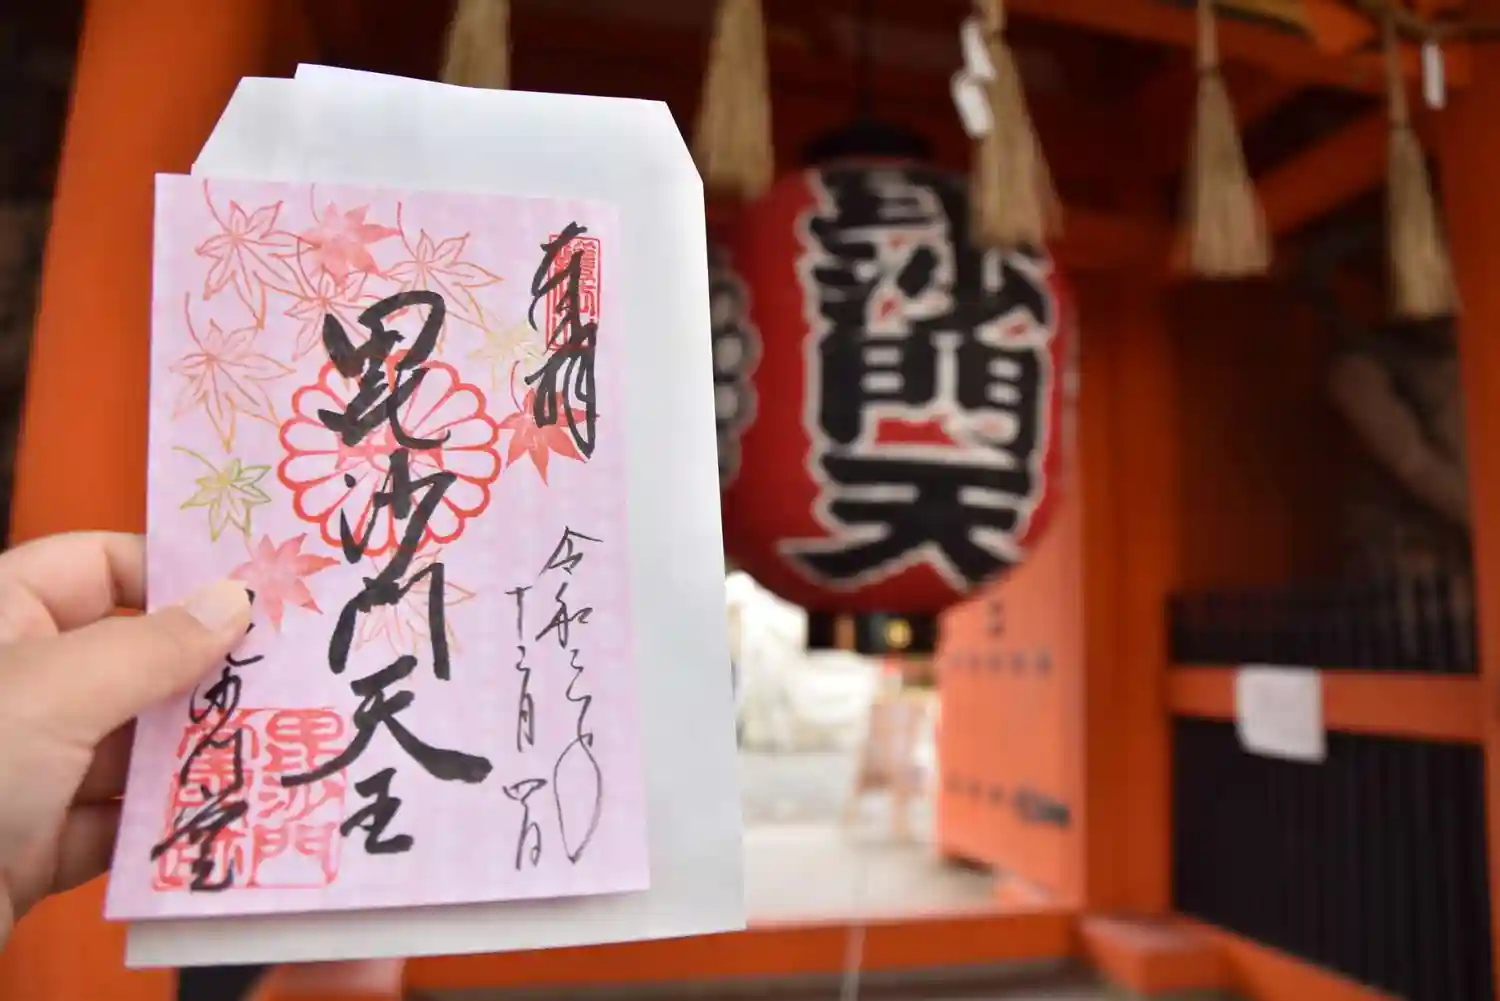 奉拝
令和二年
十二月四日
毘沙門天王
毘沙門堂
毘沙門
毘沙門天